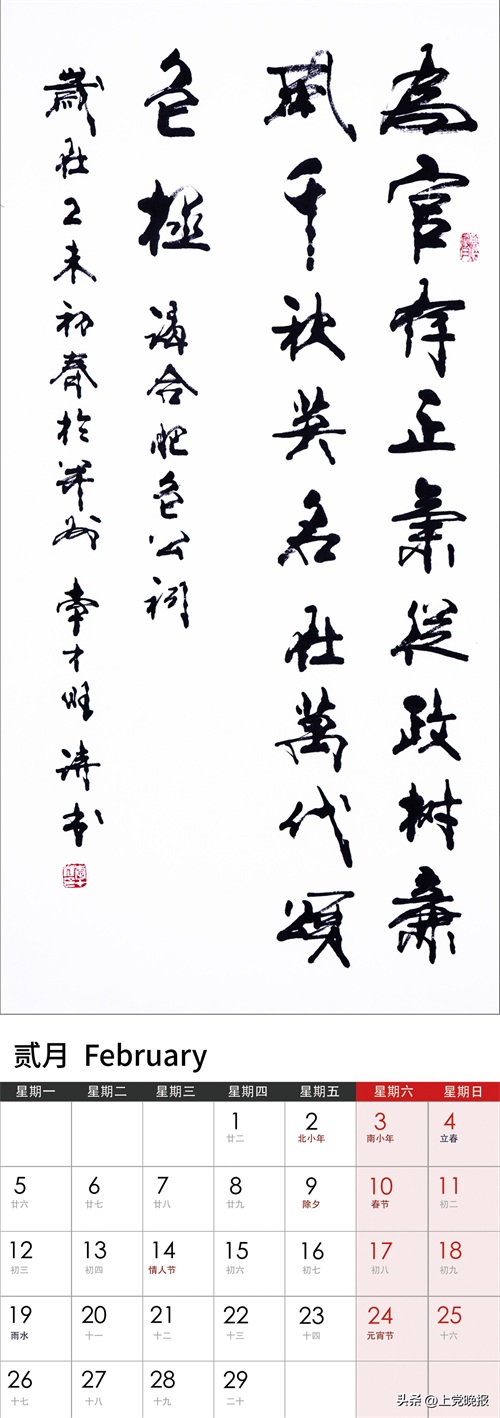 為官存正氣從政树廉
風千秋英名在萬代頌
包拯 謁合肥包公祠
歲在乙未初春於并州 李才旺 詩書
贰月 February
星期一 星期二 星期三 星期四 星期五 星期六 星期日
1 2 3 4
廿二 北小年 南小年 立春
5 6 7 8 9 10 11
廿六 廿七 廿八 廿九 除夕 春节 初二
12 13 14 15 16 17 18
初三 初四 情人节 初六 初七 初八 初九
19 20 21 22 23 24 25
雨水 十一 十二 十三 十四 元宵节 十六
26 27 28 29
十七 十八 十九 二十
头条 @上党晚报